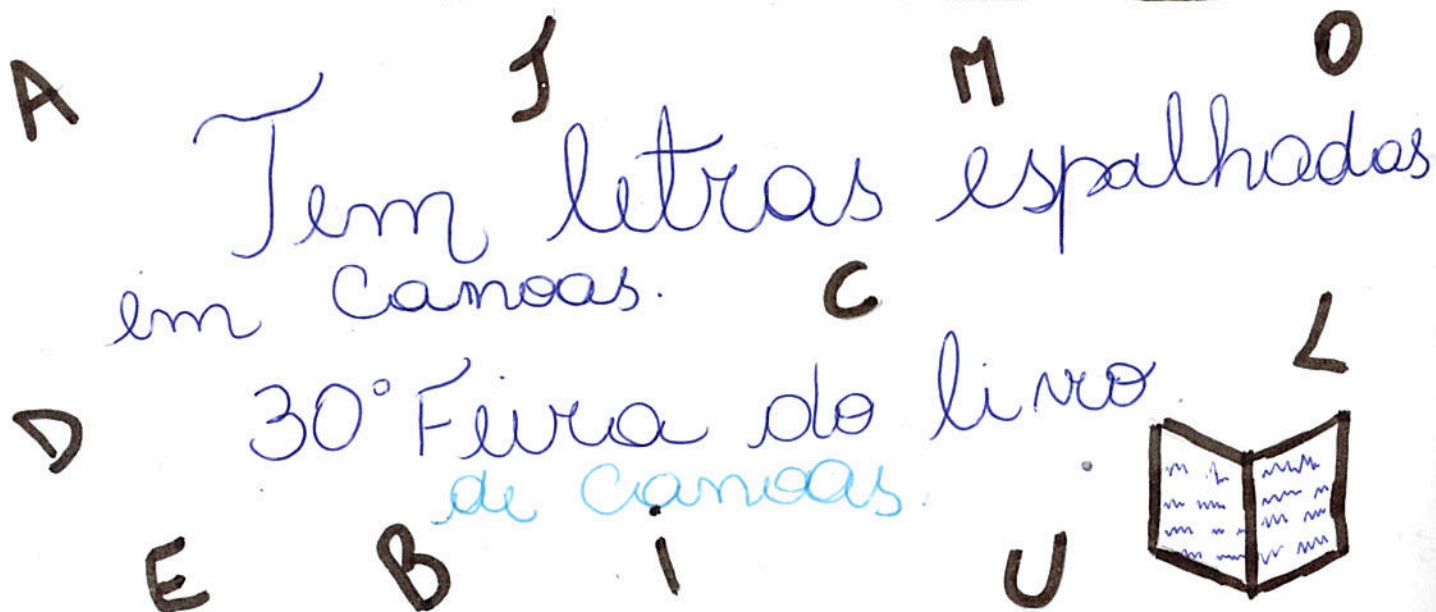 A J M O
Tem letras espalhadas
em Canoas. C
L
30° Feira do livro.
D
de Canoas.
E B i U